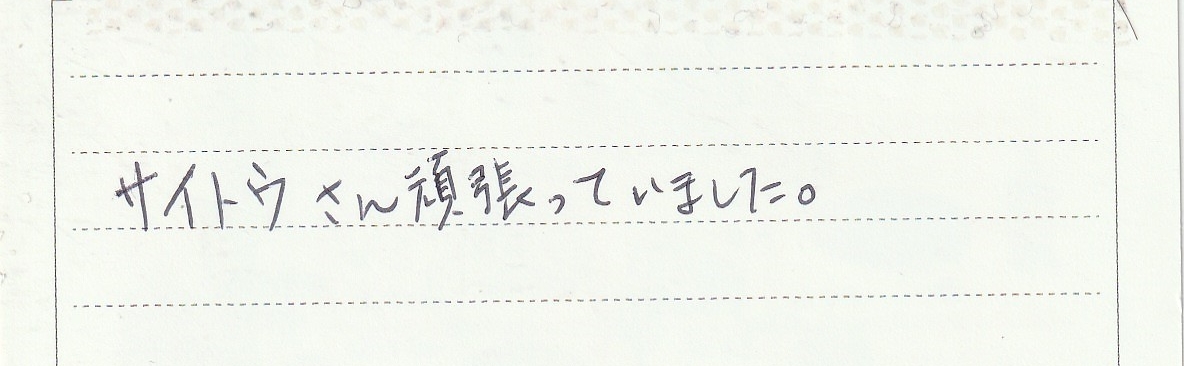 サイトウさん頑張っていました。